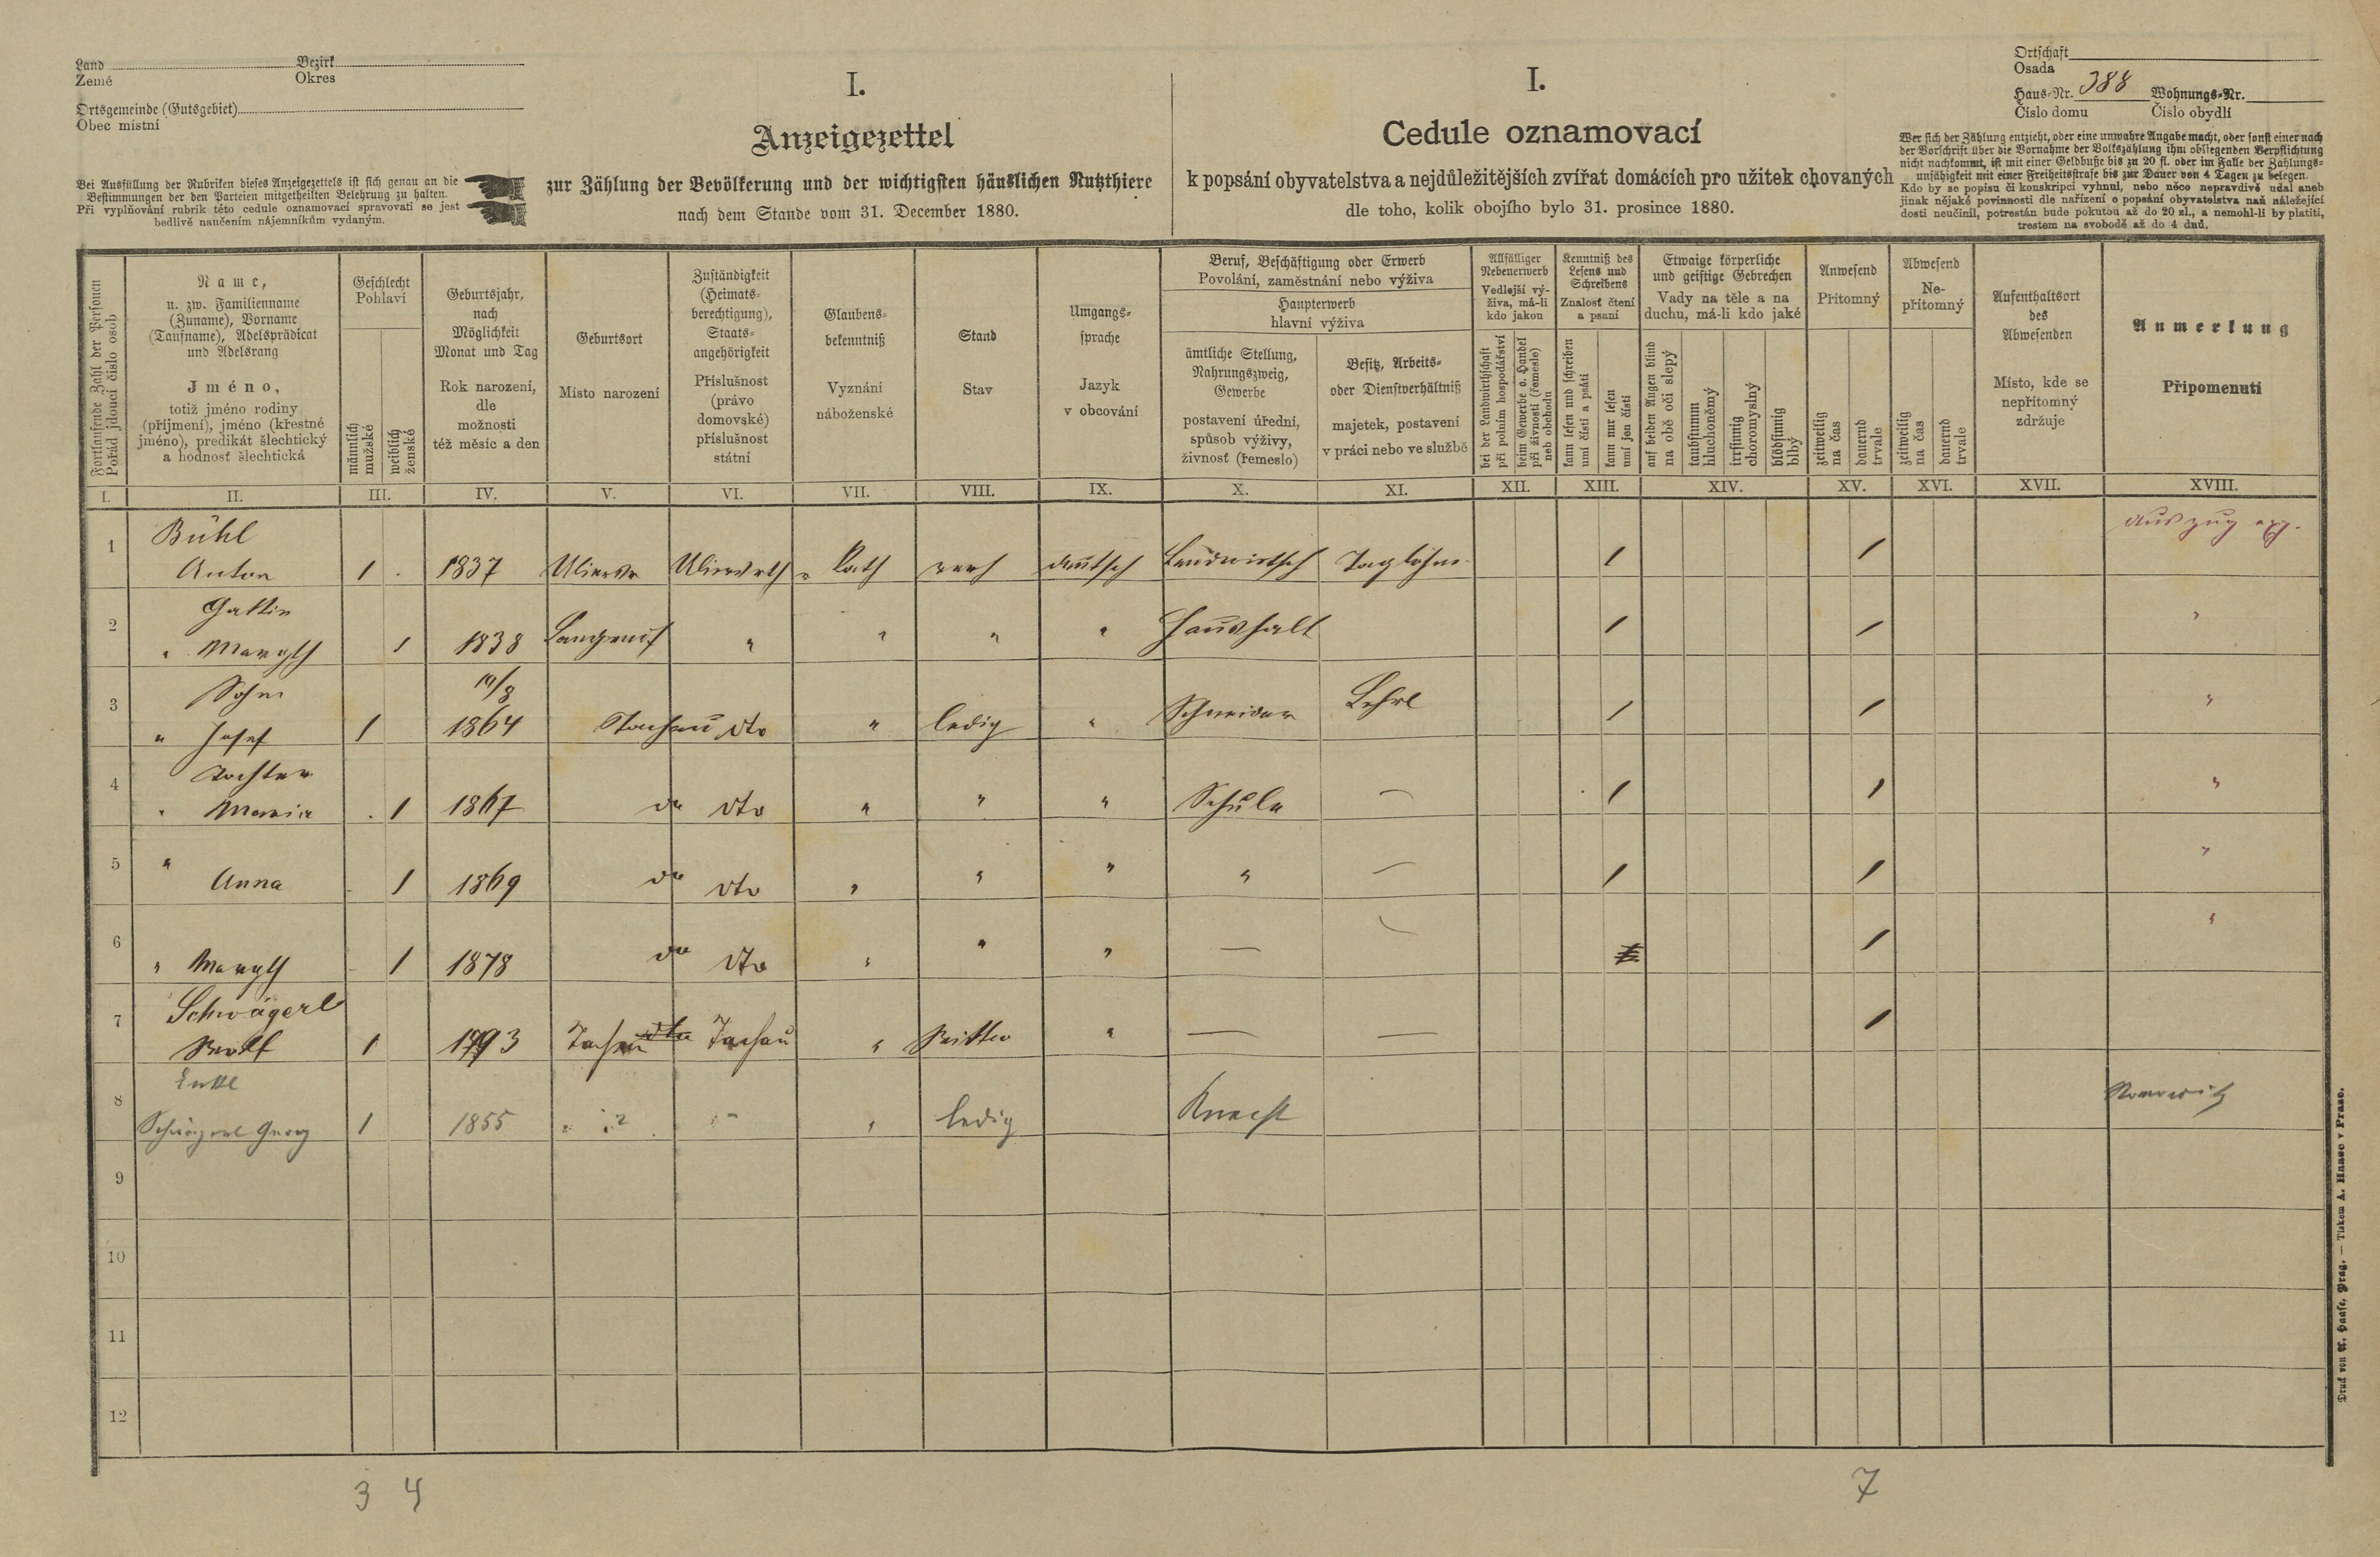 Land Bezirk
Země Okres
Ortsgemeinde (Gutsgebiet)
Obec místní
Bei Ausfüllung der Rubriken dieses Anzeigezettels ist sich genau an die
Bestimmungen der den Parteien mitgetheilten Belehrung zu halten.
Při vyplňování rubrik této cedule oznamovací spravovati se jest
bedlivě naučením nájemníkům vydaným.
I.
Anzeigezettel
zur Zählung der Bevölkerung und der wichtigsten häuslichen Nutzthiere
nach dem Stande vom 31. December 1880.
I.
Cedule oznamovací
k popsání obyvatelstva a nejdůležitějších zvířat domácích pro užitek chovaných
dle toho, kolik obojího bylo 31. prosince 1880.
Ortschaft
Osada
Haus-Nr. 388 Wohnungs-Nr.
Číslo domu Číslo obydlí
Wer sich der Zählung entzieht, oder eine unwahre Angabe macht, oder sonst einer nach
der Vorschrift über die Vornahme der Volkszählung ihm obliegenden Verpflichtung
nicht nachkommt, ist mit einer Geldbuße bis zu 20 fl. oder im Falle der Zahlungs-
unfähigkeit mit einer Freiheitsstrafe bis zur Dauer von 4 Tagen zu belegen.
Kdo by se popisu či konskripcí vyhnul, nebo něco nepravdivě udal aneb
jinak nějaké povinnosti dle nařízení o popsání obyvatelstva naň náležející
dosti neučinil, potrestán bude pokutou až do 20 zl., a nemohl-li by platiti,
trestem na svobodě až do 4 dnů.
Fortlaufende Zahl der Personen
Pořád jdoucí číslo osob
Name,
u. zw. Familienname
(Zuname), Vorname
(Taufname), Adelsprädicat
und Adelsrang
Jméno,
totiž jméno rodiny
(příjmení), jméno (křestné
jméno), predikát šlechtický
a hodnosť šlechtická
Geschlecht
Pohlaví
männlich
mužské
weiblich
ženské
Geburtsjahr,
nach
Möglichkeit
Monat und Tag
Rok narození,
dle
možnosti
též měsíc a den
Geburtsort
Místo narození
Zuständigkeit
(Heimats-
berechtigung),
Staats-
angehörigkeit
Příslušnost
(právo
domovské)
příslušnost
státní
Glaubens-
bekenntniß
Vyznání
náboženské
Stand
Stav
Umgangs-
sprache
Jazyk
v obcování
Beruf, Beschäftigung oder Erwerb
Povolání, zaměstnání nebo výživa
Haupterwerb
hlavní výživa
ämtliche Stellung,
Nahrungszweig,
Gewerbe
postavení úřední,
spůsob výživy,
živnosť (řemeslo)
Besitz, Arbeits-
oder Dienstverhältniß
majetek, postavení
v práci nebo ve službě
Allfälliger
Nebenerwerb
Vedlejší vý-
živa, má-li
kdo jakou
bei der Landwirthschaft
při polním hospodářství
beim Gewerbe o. Handel
při živnosti (řemesle)
neb obchodu
Kenntniß des
Lesens und
Schreibens
Znalosť čtení
a psaní
kann lesen und schreiben
umí čísti a psáti
kann nur lesen
umí jen čísti
Etwaige körperliche
und geistige Gebrechen
Vady na těle a na
duchu, má-li kdo jaké
auf beiden Augen blind
na obě oči slepý
taubstumm
hluchoněmý
irrsinnig
choromyslný
blödsinnig
blbý
Anwesend
Přítomný
zeitweilig
na čas
dauernd
trvale
Abwesend
Ne-
přítomný
zeitweilig
na čas
dauernd
trvale
Aufenthaltsort
des
Abwesenden
Místo, kde se
nepřítomný
zdržuje
Anmerkung
Připomenutí
I. II. III. IV. V. VI. VII. VIII. IX. X. XI. XII. XIII. XIV. XV. XVI. XVII. XVIII.
1 Bühl
Anton 1 1837 " Kath verh deutsch Landwirtsch Taglöhner 1 1
2 Gattin
" Margth 1 1838 " " " " Haushalt 1 1 "
3 Sohn 19/8
" Josef 1 1864 Tachau dto " ledig " Schneider Lehrl 1 1 "
4 Tochter
" Maria 1 1867 do dto " " " Schule — 1 1 "
5 "
Anna 1 1869 do dto " " " " — 1 1 "
6
" Margth 1 1878 do dto " " " — 1 "
7 Schwägerl
Wolf 1 1793 Tachau dto Tachau " Wittwer " — — 1
8 Enkl
Schwägerl Georg 1 1855 " " ledig Knecht
9
10
11
12
3 4 7
Druck von A. Haase, Prag. — Tiskem A. Haase v Praze.